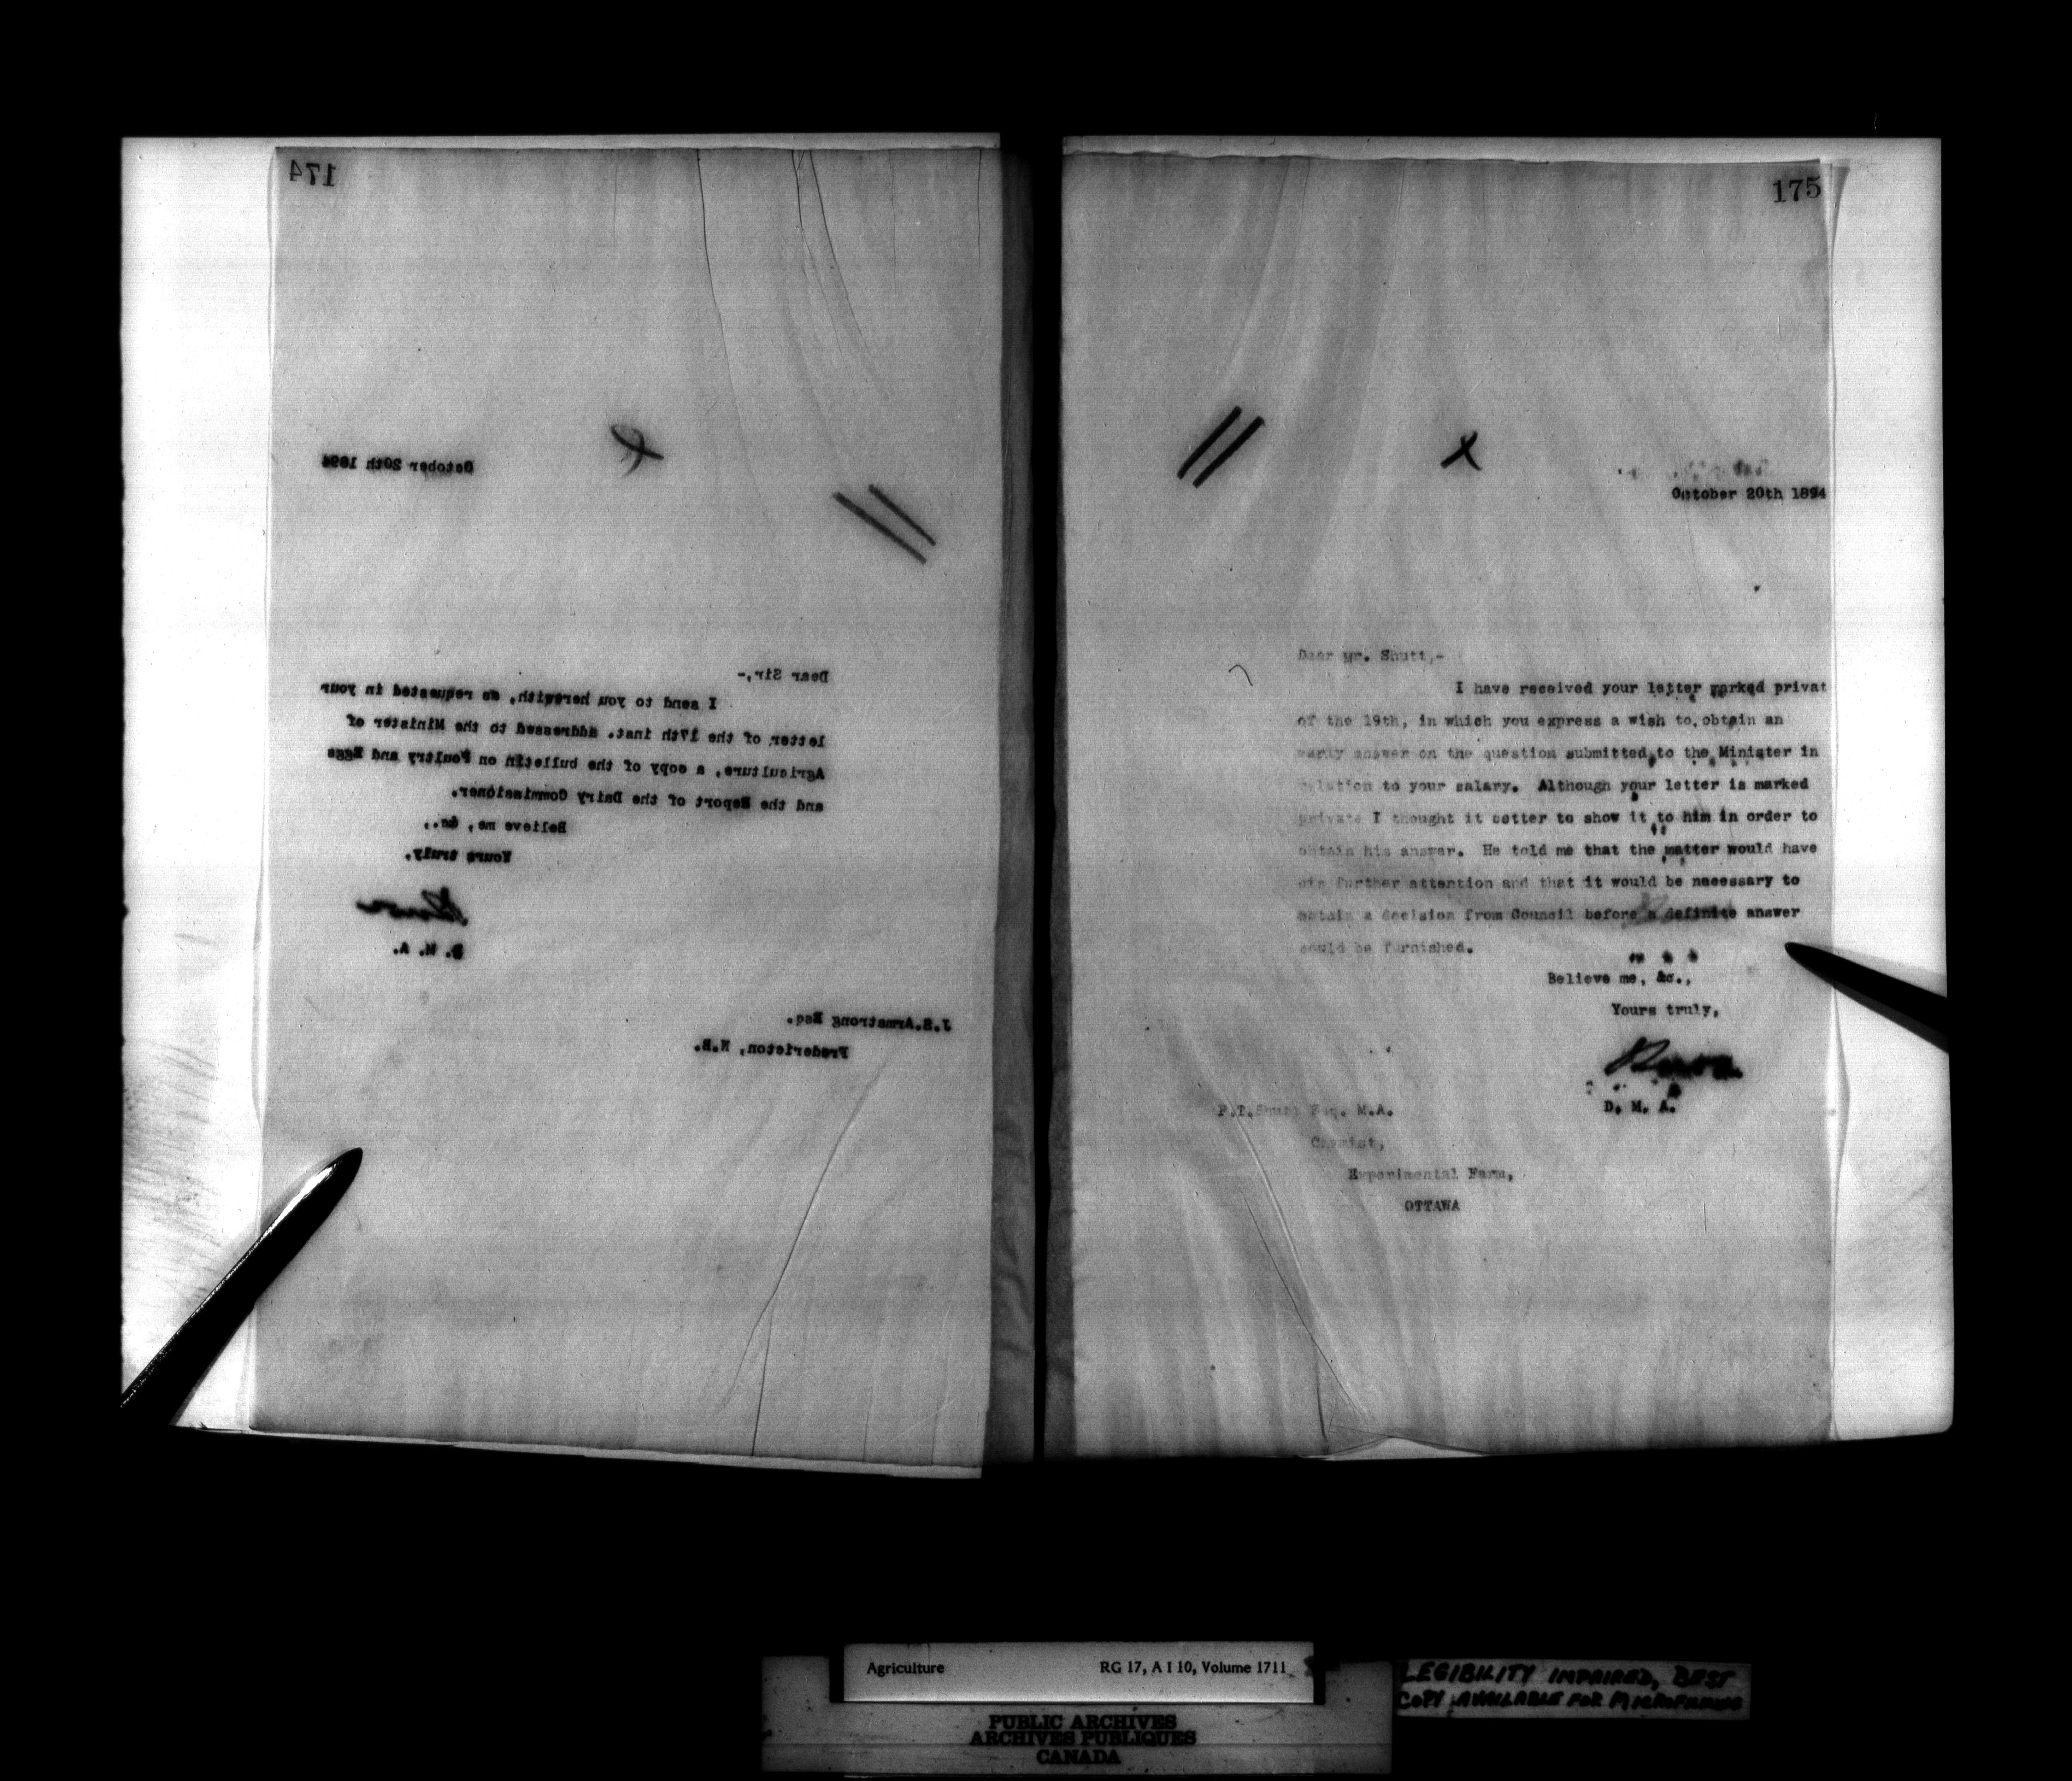 174
October 20th 1894
Dear Sir,-
I send to you herewith, as requested in your
letter of the 17th inst. addressed to the Minister of
Agriculture, a copy of the bulletin on Poultry and Eggs
and the Report of the Dairy Commissioner.
Believe me, &c.,
Yours truly,
D. M. A.
J.S.Armstrong Esq.
Fredericton, N.B.
175
October 20th 1894
Dear Mr. Shutt,-
I have received your letter marked privat
of the 19th, in which you express a wish to obtain an
early answer on the question submitted to the Minister in
relation to your salary. Although your letter is marked
private I thought it better to show it to him in order to
obtain his answer. He told me that the matter would have
his further attention and that it would be necessary to
obtain a decision from Council before a definite answer
could be furnished.
Believe me, &c.,
Yours truly,
D. M. A.
F.T.Shutt Esq. M.A.
Chemist,
Experimental Farm,
OTTAWA
Agriculture RG 17, A I 10, Volume 1711
PUBLIC ARCHIVES
ARCHIVES PUBLIQUES
CANADA
LEGIBILITY IMPAIRED, BEST
COPY AVAILABLE FOR MICROFILMING